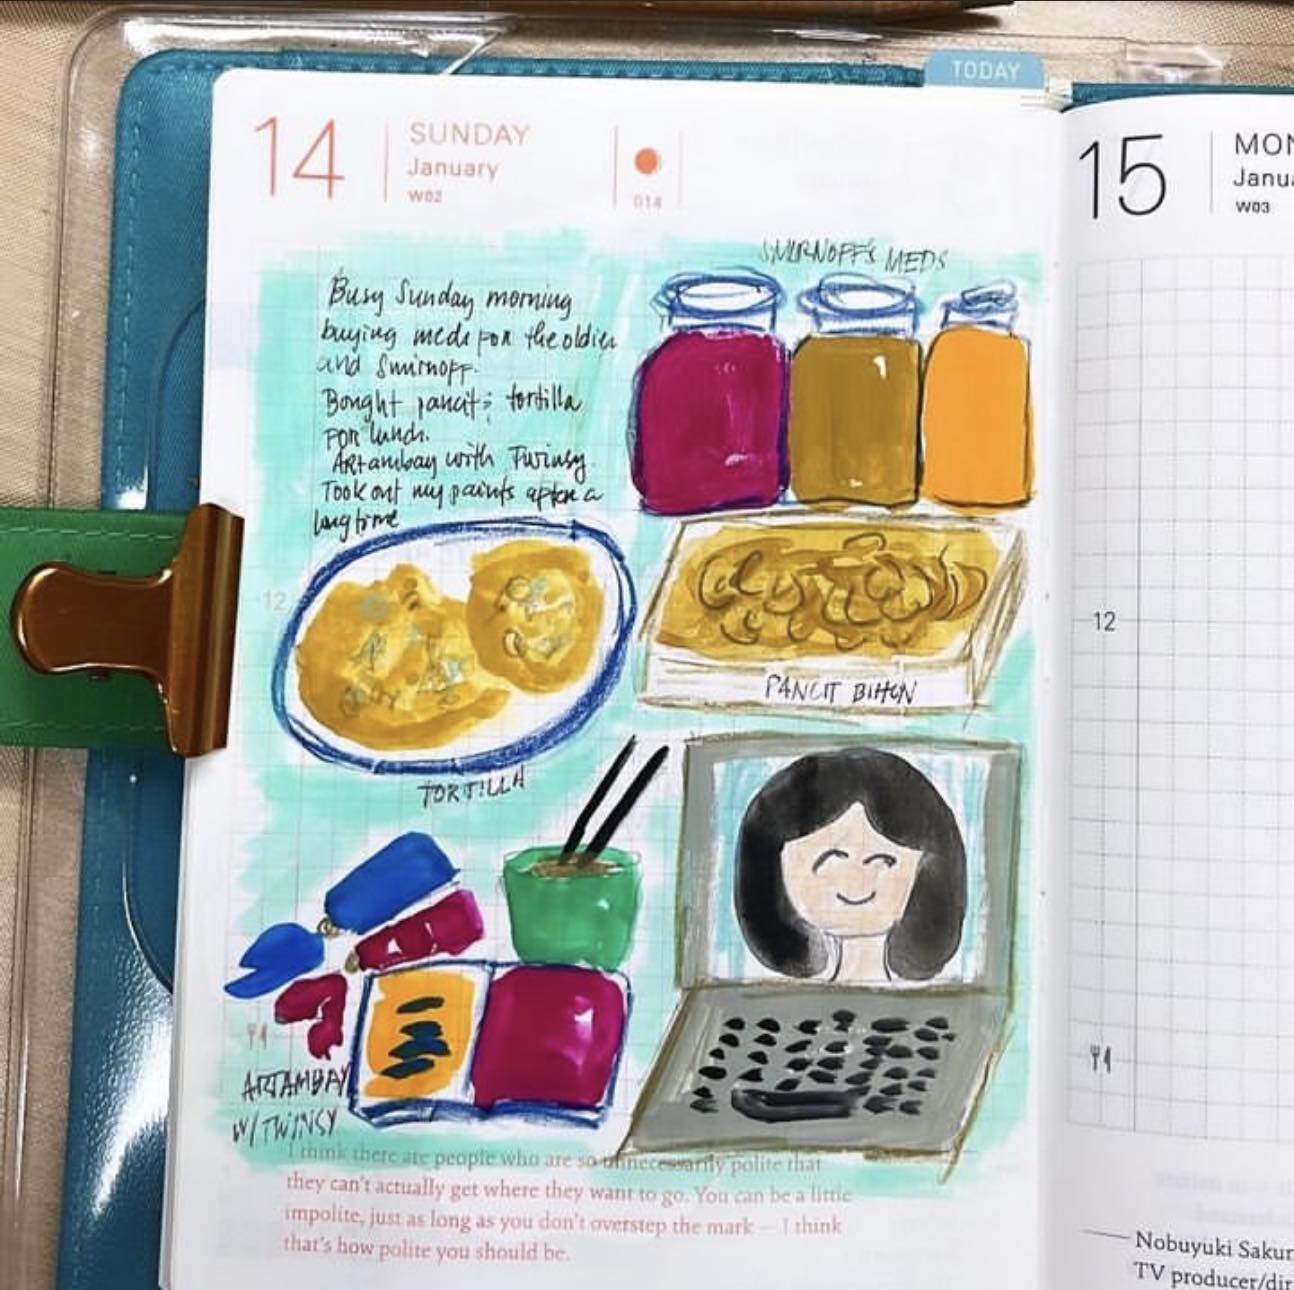 TODAY
14
SUNDAY
January
W02
014
SMIRNOFF'S MEDS
Busy Sunday morning
buying meds for the oldies
and Smirnoff.
Bought pancit & tortilla
for lunch.
Artambay with Twinsy.
Took out my paints after a
long time
12
PANCIT BIHON
TORTILLA
ARTAMBAY
W/ TWINSY
I think there are people who are so unnecessarily polite that
they can't actually get where they want to go. You can be a little
impolite, just as long as you don't overstep the mark — I think
that's how polite you should be.
15
MON
Janua
W03
12
Nobuyuki Sakur
TV producer/dir